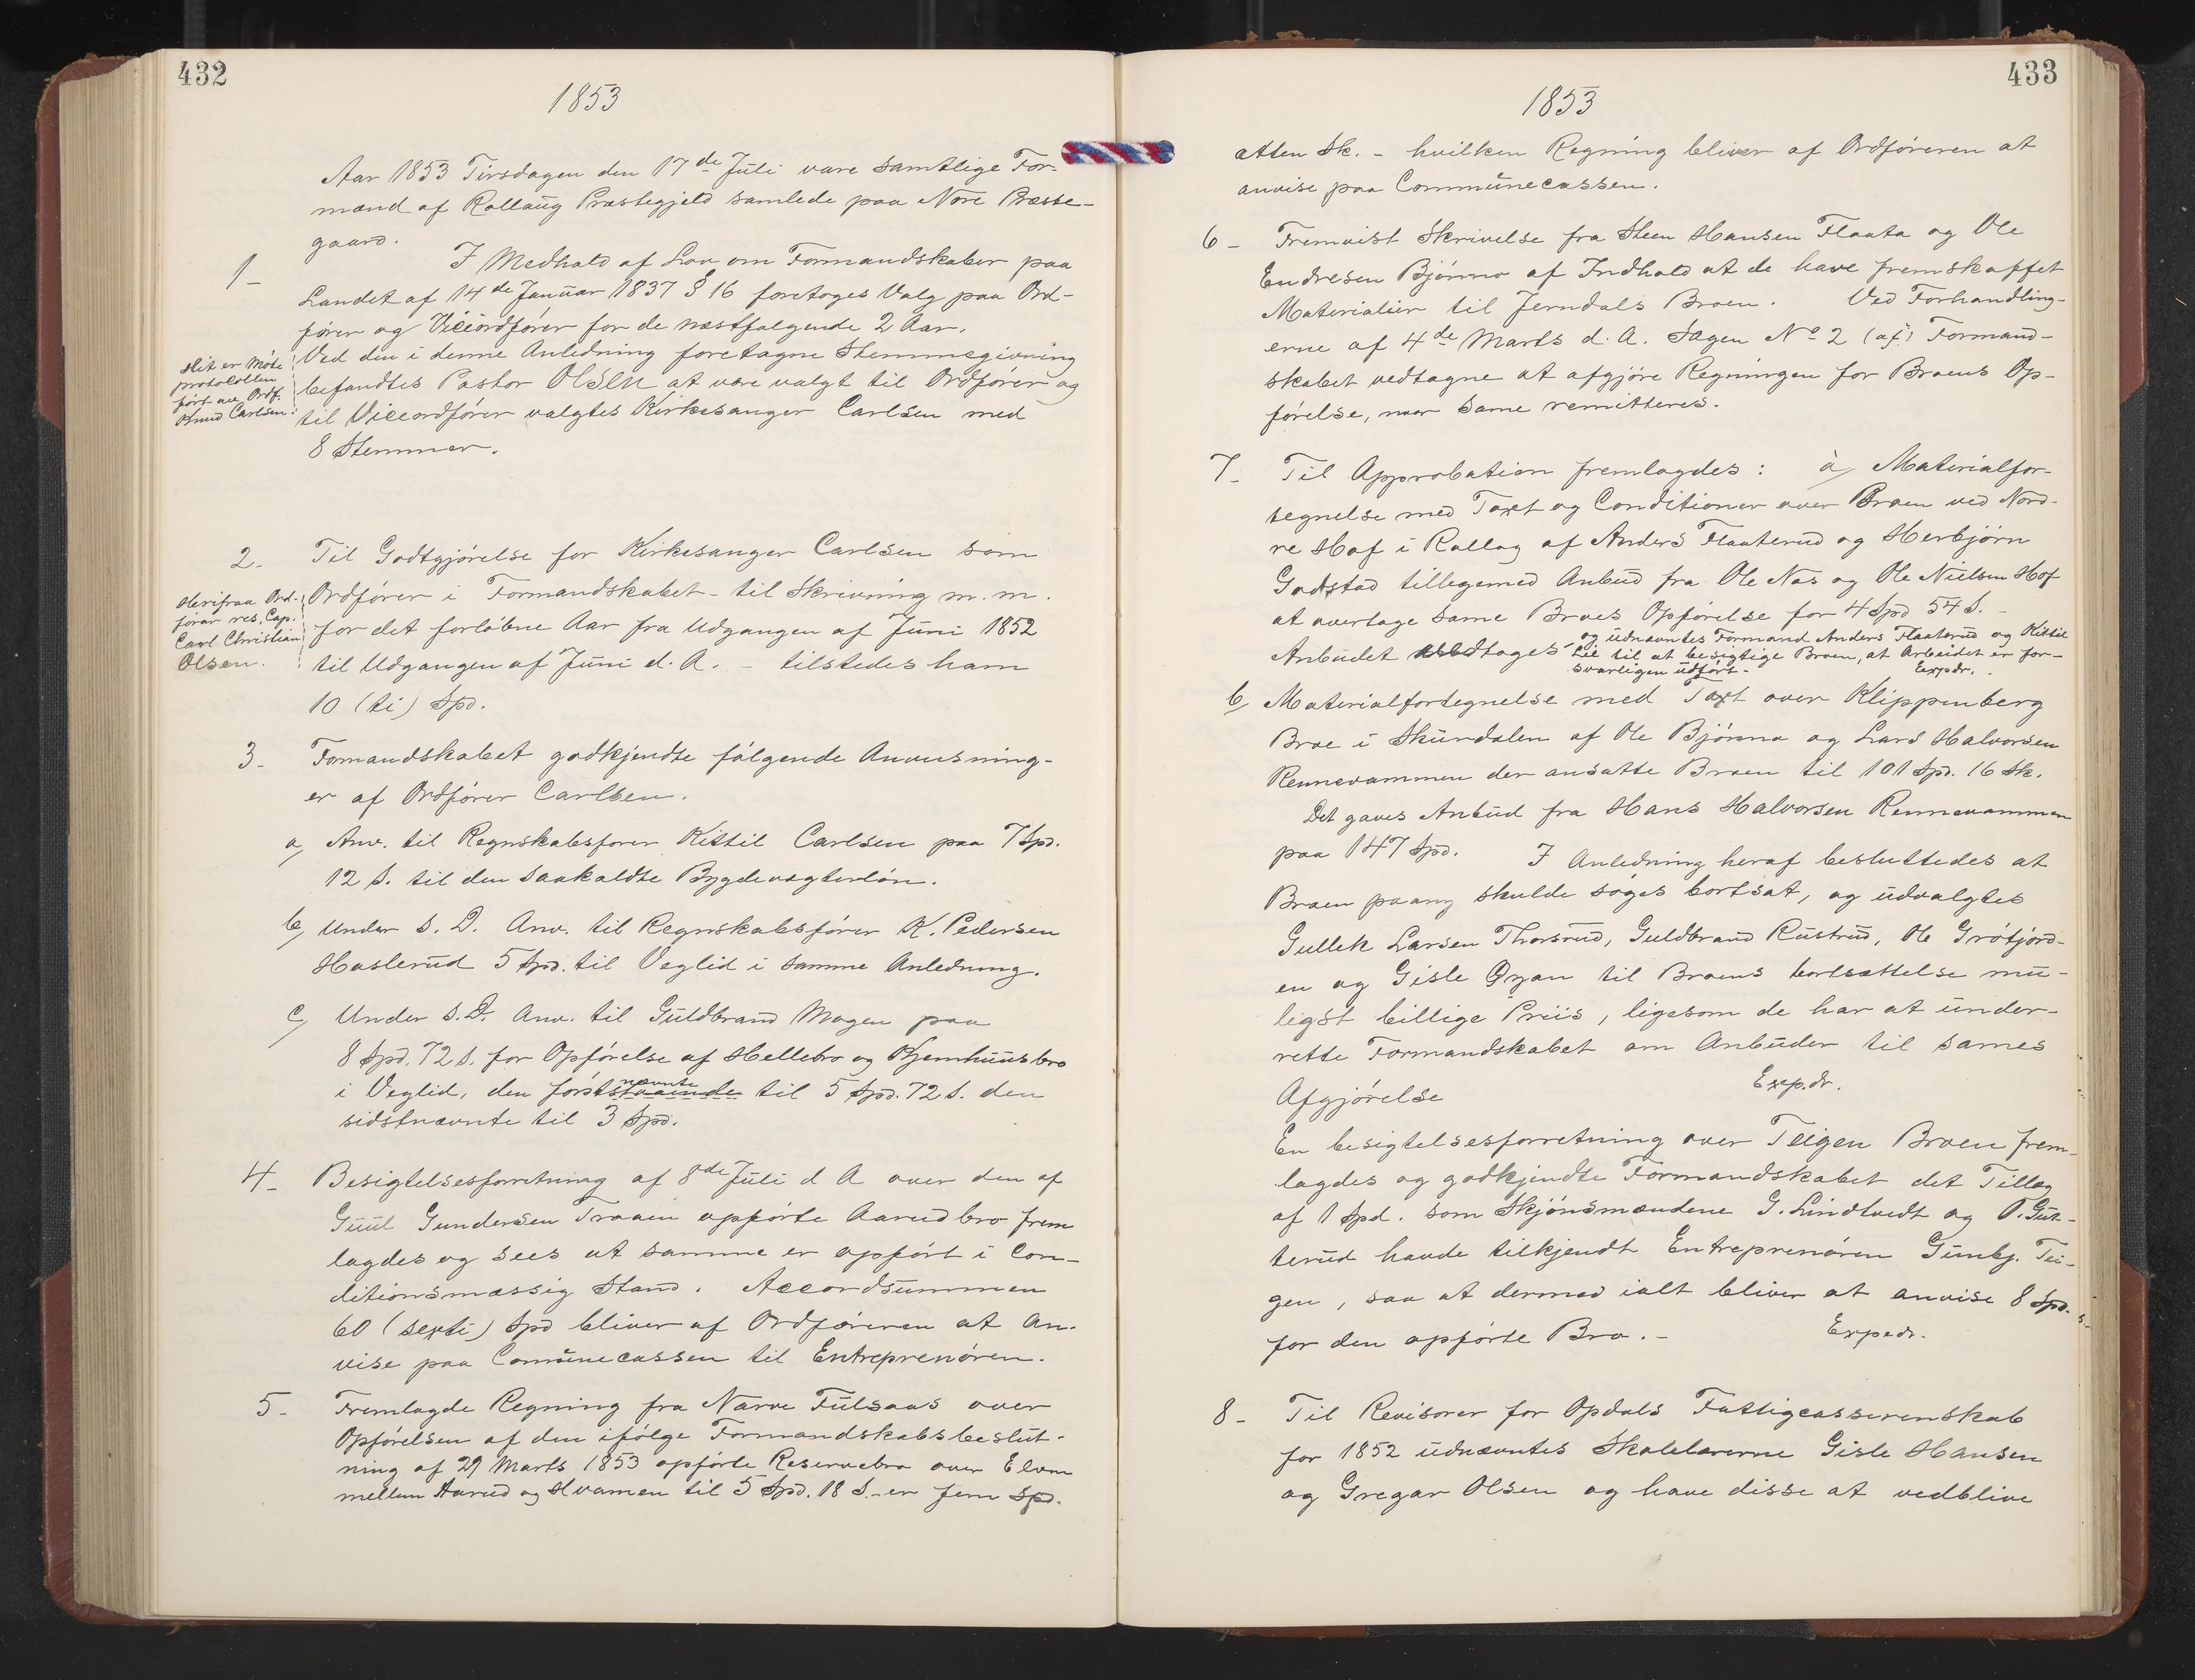 432
1853
Aar 1853 Tirsdagen den 17de Juli vare samtlige For-
mænd af Rollaug Præstegjeld samlede paa Nore Præste-
gaard.
1- I Medhold af Lov om Formandskaber paa
Landet af 14de Januar 1837 § 16 foretoges Valg paa Ord-
fører og Viceordfører for de næstfølgende 2 Aar.
Ved den i denne Anledning foretagne Stemmegivning
befandtes Pastor Olsen at være valgt til Ordfører og
til Viceordfører valgtes Kirkesanger Carlsen med
8 Stemmer.
Hit er Møte
protocollen
ført av Ordf.
Knud Carlsen.
2- Til Godtgjørelse for Kirkesanger Carlsen som
Ordfører i Formandskabet - til Skrivning m. m.
for det forløbne Aar fra Udgangen af Juni 1852
til Udgangen af Juni d. A. - tilstedes ham
10 (ti) Spd.
Herifraa Ord-
førar res. Cap.
Carl Christian
Olsen.
3- Formandskabet godkjendte følgende Anvisning-
er af Ordfører Carlsen.
a, Anv. til Regnskabsfører Kittil Carlsen paa 7 Spd.
12 s. til den saakaldte Bygdevægterløn.
b, Under s. D. Anv. til Regnskabsfører K. Pedersen
Haslerud 5 Spd. til Veglid i samme Anledning.
c, Under s. D. Anv. til Guldbrand Mogen paa
8 Spd. 72 s. for Opførelse af Hellebro og Kjemhuusbro
nævnte
i Veglid, den først til 5 Spd. 72 s. den
sidstnævnte til 3 Spd.
4- Besigtelsesforretning af 8de Juli d A over den af
Guul Gundersen Traaen opførte Aarud bro frem
lagdes og sees at samme er opført i Con-
ditionsmæssig Stand. Accordsummen
60 (sexti) Spd bliver af Ordføreren at An-
vise paa Comunecassen til Entreprenøren.
5- Fremlagde Regning fra Narve Fulsaas over
Opførelsen af den ifølge Formandskabsbeslut-
ning af 29 Marts 1853 opførte Reservebro over Elven
mellem Aarud og Hvamen til 5 Spd. 18 s. - er fem Spd.
433
1853
atten Sk. - hvilken Regning bliver af Ordføreren at
anvise paa Communecassen.
6- Fremvist Skrivelse fra Steen Hansen Flaata og Ole
Endresen Bjønno af Indhold at de have fremskaffet
Materialier til Jerndals Broen. Ved Forhandling-
erne af 4de Marts d. A. Sagen No 2 (af) Formand-
skabet vedtagne at afgjøre Regningen for Broens Op-
førelse, naar same remitteres.
7- Til Approbation fremlagdes: a, Materialfor-
tegnelse med Taxt og Conditioner over Broen ved Nord-
re Hof i Rollag af Anders Flaaterud og Herbjørn
Godstad tillegemed Anbud fra Ole Næs og Ole Nielsen Hof
at overtage same Broes Opførelse for 4 Spd 54 s. -
og udnævntes Formand Anders Flaaterud og Kittil
Anbudet vedtages Lie til at besigtige Broen, at Arbeidet er for-
svarligen udført - Expdr.
b, Materialfortegnelse med Taxt over Klippenberg
Broe i Skurdalen af Ole Bjønno og Lars Halvorsen
Rennevammen der ansatte Broen til 101 Spd. 16 Sk.
Det gaves Anbud fra Hans Halvorsen Rennevammen
paa 147 Spd. I Anledning heraf besluttedes at
Broen paany skulde søges bortsat, og udvalgtes
Gullek Larsen Thorsrud, Guldbrand Rustrud, Ole Grøtjord-
en og Gisle Øyan til Broens bortsættelse mu-
ligst billige Priis, ligesom de har at under-
rette Formandskabet om Anbuder til sames
Afgjørelse Exp.dr.
En besigtelsesforretning over Teigen Broen frem-
lagdes og godkjendte Formandskabet det Tillæg
af 1 Spd. som Skjønsmændene G. Lindtvedt og O. Gut-
terud havde tilkjendt Entreprenøren Gunbj. Tei-
gen, saa at dermed ialt bliver at anvise 8 Spd.
for den opførte Bro. - Expedr.
8- Til Revisorer for Opdals Fattigcasserenskab
for 1852 udnævntes Skolelærerne Gisle Hansen
og Gregar Olsen og have disse at vedblive